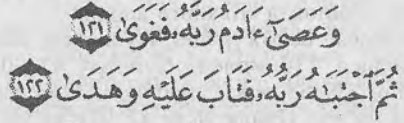 وَعَصَىٰٓ ءَادَمُ رَبَّهُۥ فَغَوَىٰ ١٢١
ثُمَّ ٱجْتَبَٰهُ رَبُّهُۥ فَتَابَ عَلَيْهِ وَهَدَىٰ ١٢٢